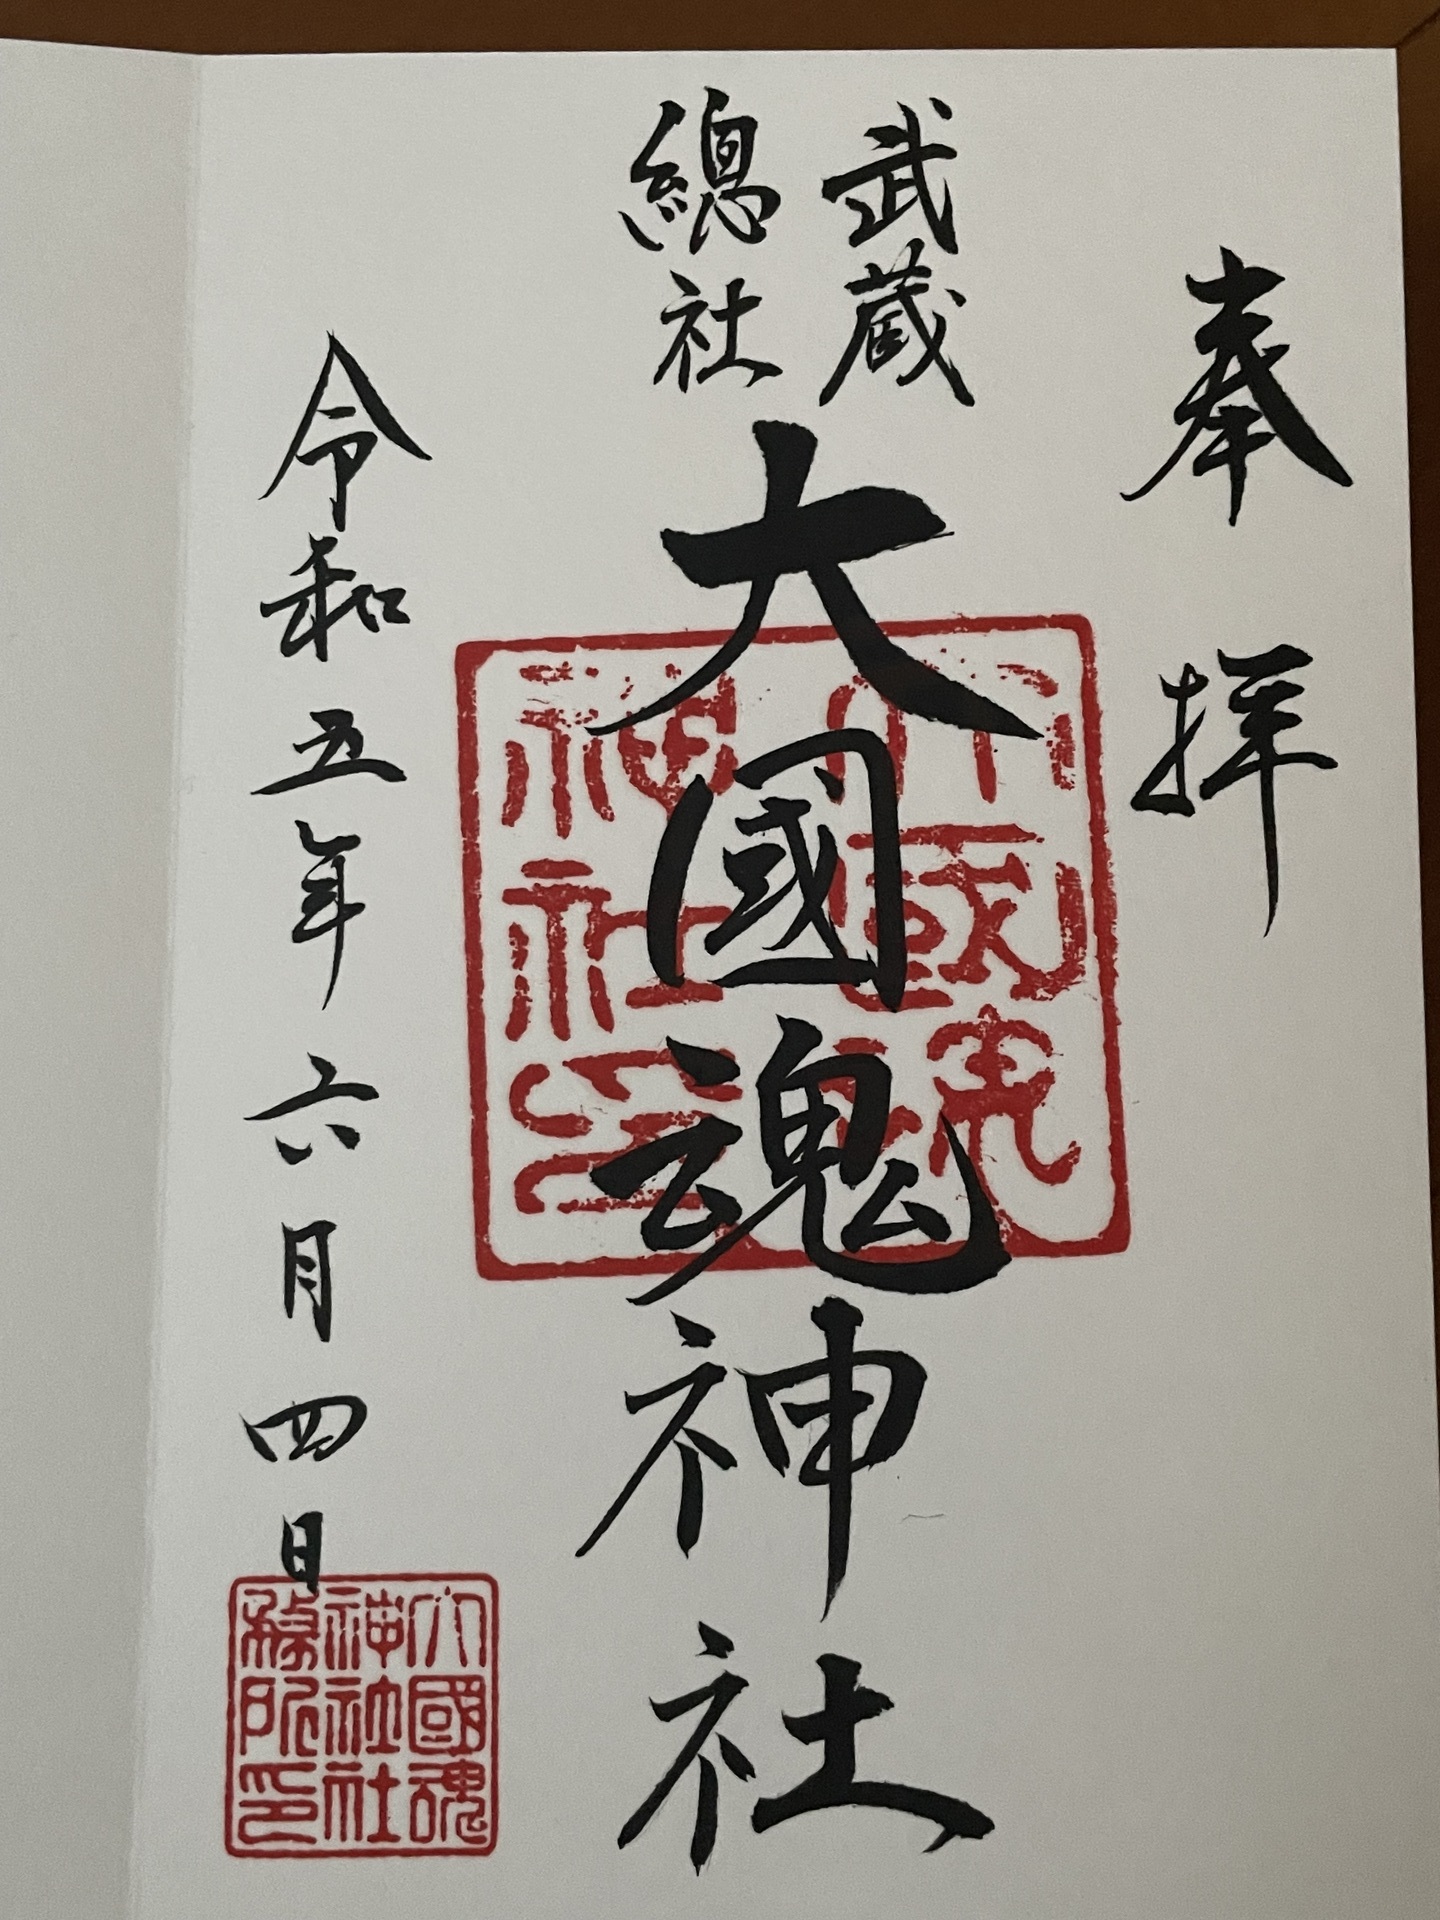 奉拝
武蔵
總社
大國魂神社
令和五年六月四日
大國魂
神社印
大國魂
神社社
務所印